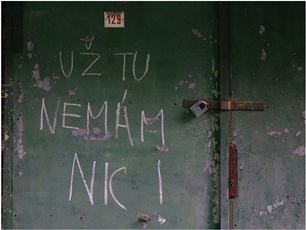 129
UŽ TU
NEMÁM
NIC!